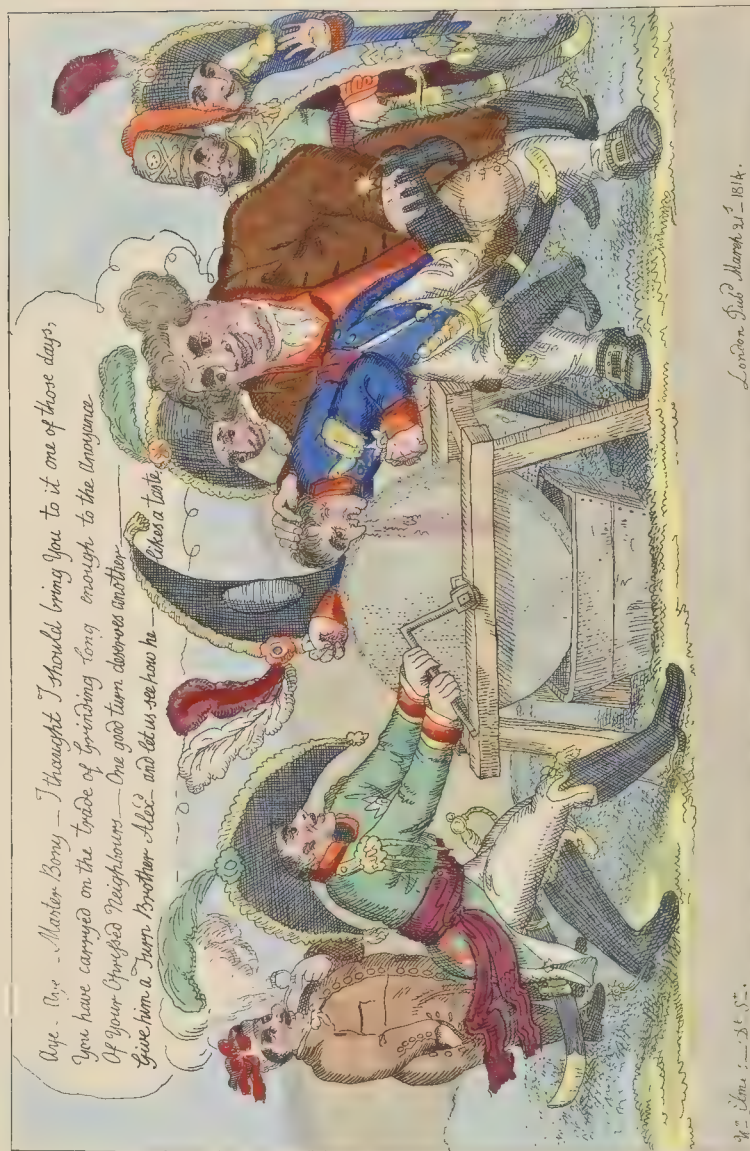 Aye - Aye - Master Bony — I thought I should bring You to it one of those days,
You have carryed on the trade of Grinding long enough to the Anoyance
Of your Opressed Neighbours — One good turn deserves another —
Give him a Turn Brother Alexd — and let us see how he — likes a taste
London Pubd March 21st — 1814.